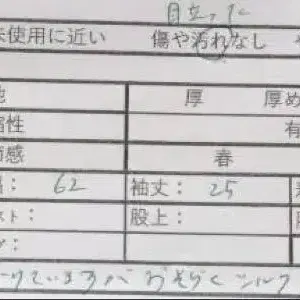 目立った
未使用に近い 傷や汚れなし
地 厚 厚め
縮性 有
節感 春
幅： 62 袖丈： 25
スト： 股上：
けていますが おそらくシルク